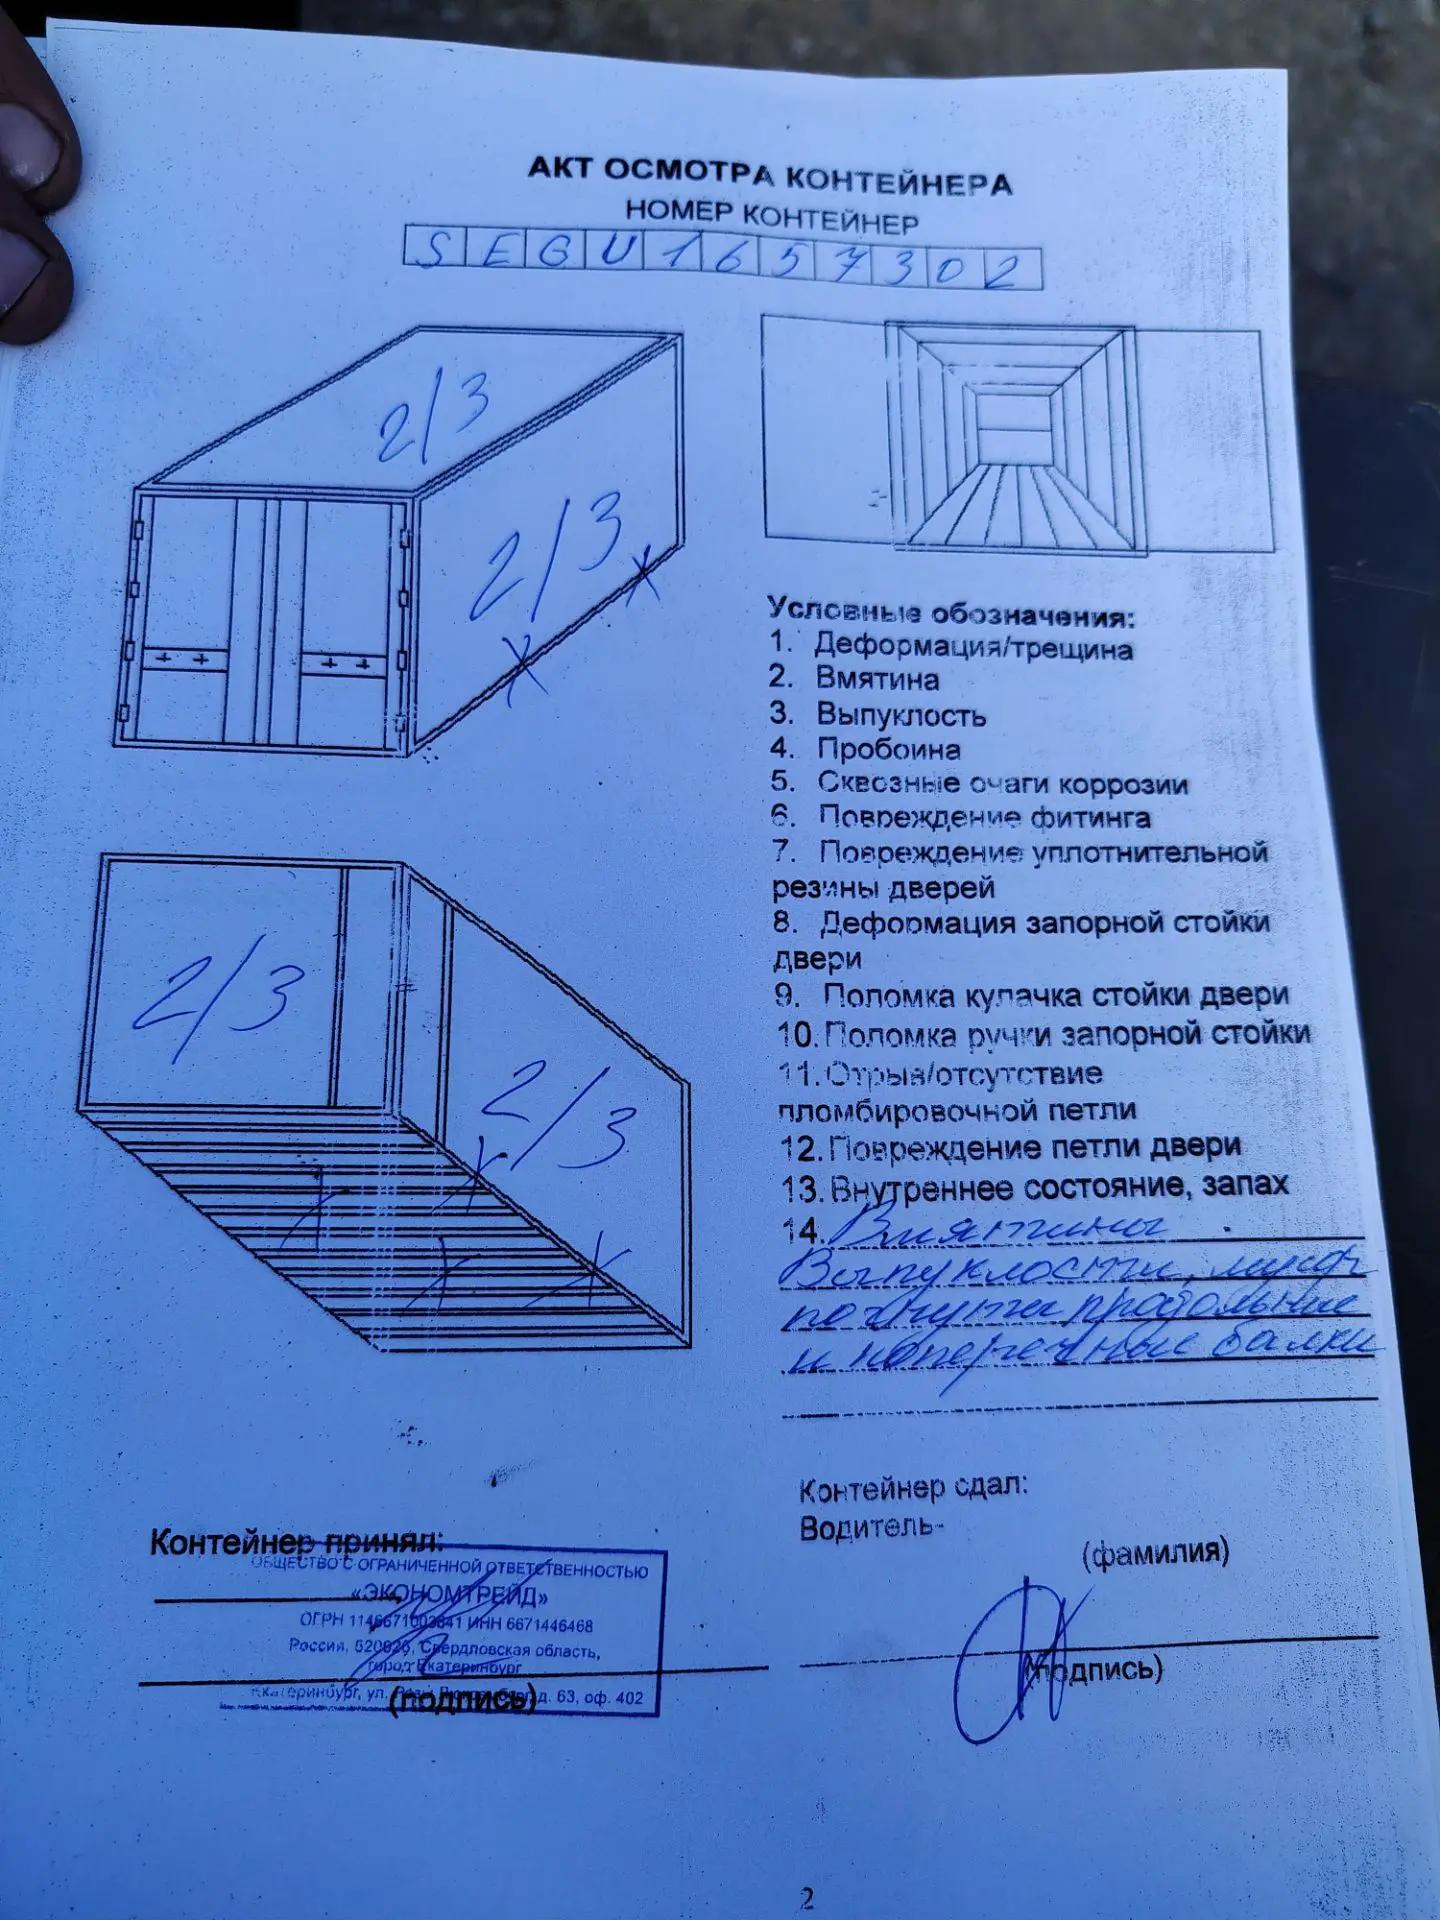 АКТ ОСМОТРА КОНТЕЙНЕРА
НОМЕР КОНТЕЙНЕР
SEGU1657302
2/3
2/3
2/3
2/3
Условные обозначения:
1. Деформация/трещина
2. Вмятина
3. Выпуклость
4. Пробоина
5. Сквозные очаги коррозии
6. Повреждение фитинга
7. Повреждение уплотнительной
резины дверей
8. Деформация запорной стойки
двери
9. Поломка кулачка стойки двери
10. Поломка ручки запорной стойки
11. Отрыв/отсутствие
пломбировочной петли
12. Повреждение петли двери
13. Внутреннее состояние, запах
14. Вмятины
Выпуклости,
погнуты продольные
и поперечные балки
Контейнер принял:
ОБЩЕСТВО С ОГРАНИЧЕННОЙ ОТВЕТСТВЕННОСТЬЮ
«ЭКОНОМТРЕЙД»
ОГРН ИНН 6671446468
Россия, Свердловская область,
город Екатеринбург
Екатеринбург, ул. д. 63, оф. 402
(подпись)
Контейнер сдал:
Водитель-
(фамилия)
(подпись)
2